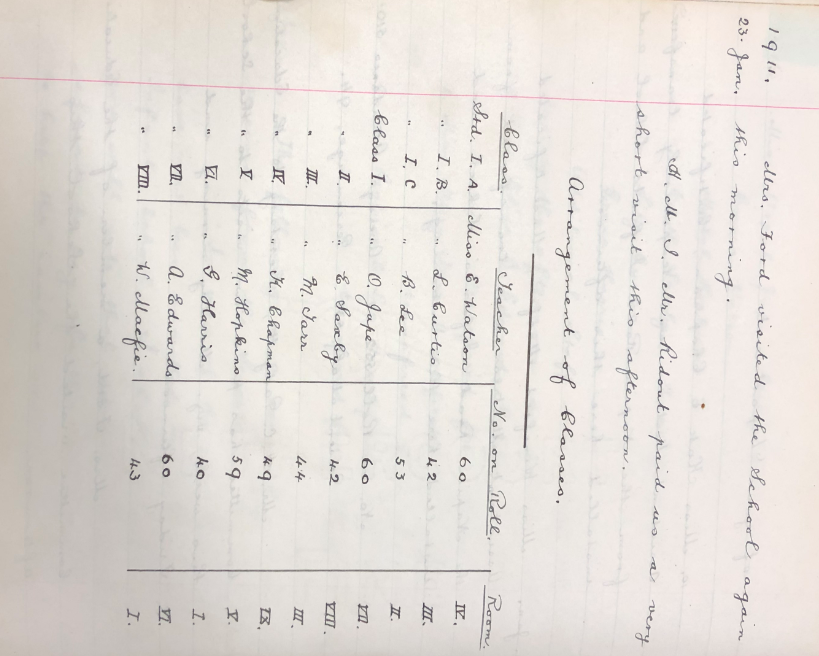 1911.
23. Jan. Mrs. Ford visited the School again
this morning.
H. M. I. Mr. Ridout paid us a very
short visit this afternoon.
Arrangement of Classes.
Class. Teacher No. on Roll. Room.
Std. I. A. Miss E. Watson 60 IV.
" I. B. " L. Curtis 42 III.
" I. C " B. Lee 53 II.
Class I. " O. Jupe 60 VII.
" II. " E. Saxby 42 VIII.
" III. " M. Tarr 44 III.
" IV. " K. Chapman 49 IX.
" V " M. Hopkins 59 V.
" VI. " G. Harris 40 I.
" VII. " A. Edwards 60 VI.
" VIII. " W. Macfie. 43 I.